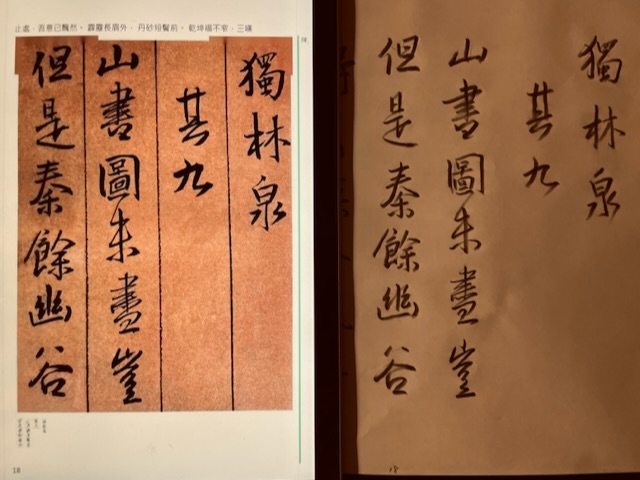 止處。吾意已飄然。霹靂長眉外。丹砂短鬢前。乾坤端不窄。三嘆
獨林泉
其九
山書圖未盡豈
但是秦餘幽谷
18
獨林泉
其九
山書圖未盡豈
但是秦餘幽谷
18